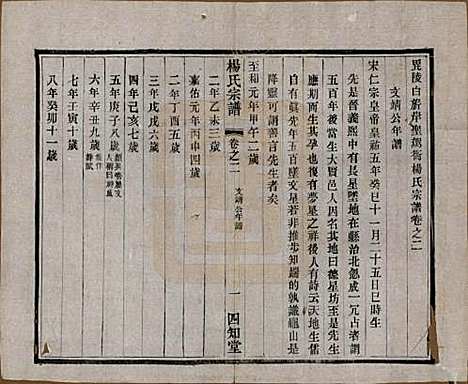 毘陵白蔚岸聖駕衖楊氏宗譜卷之二
文靖公年譜
宋仁宗皇帝皇祐五年癸巳十一月二十五日巳時生
先是晉義熙中有長星墜地在縣治北忽成一冗占者謂
五百年後當生大賢邑人因名其地曰德星坊至是先生
應期而生其孕寔有夢星之祥後人有詩云天地生儒
自有眞先年五百墜文星若非推步知端的執識龜山是
降靈可謂善言先生者矣
至和元年甲午二歲
二年乙未三歲
楊氏宗譜
卷之二
文靖公年譜
一
四知堂
嘉佑元年丙申四歲
二年丁酉五歲
三年戊戌六歲
四年己亥七歲
五年庚子八歲
六年辛丑九歲
七年壬寅十歲
八年癸卯十一歲